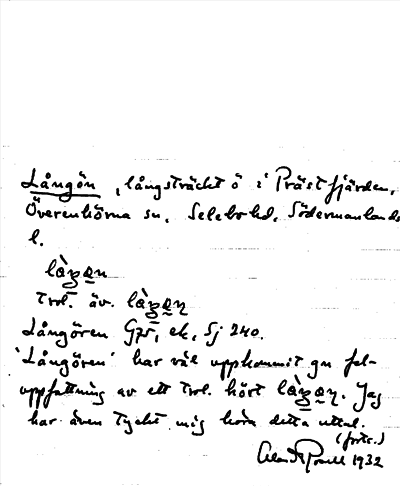 Långön, långsträckt ö i Prästfjärden,
Överenhörna sn, Selebo hd, Södermanlands
l.
Trol. äv.
Långören G75, ek. Sj 240.
'Långören' har väl uppkommit gm fel-
uppfattning av ett trol. hört Jag
har även tyckt mig höra detta uttal.
(forts.)
1932